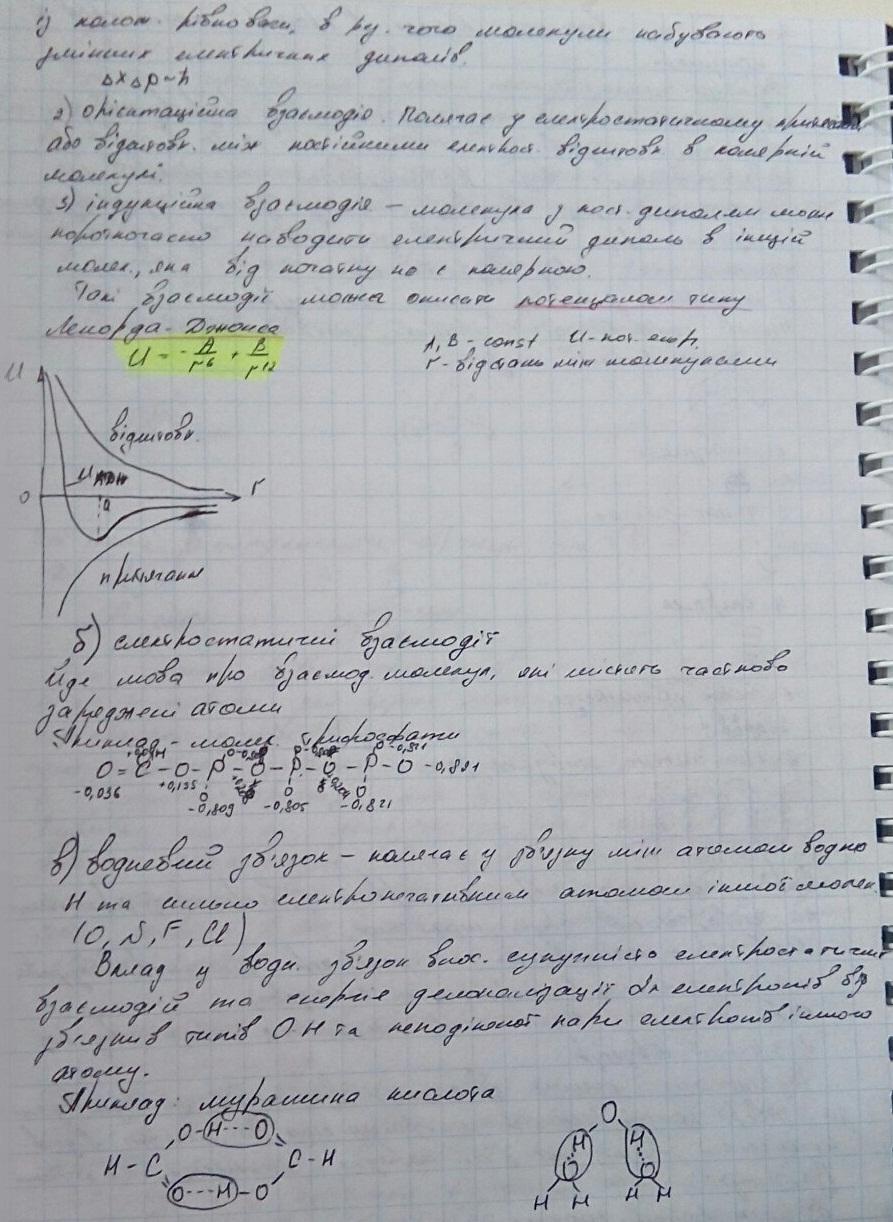 із полож. рівноваги, в рез. чого молекули набувають
змінних електричних диполів.
Δx Δp ~ ħ
2) Орієнтаційна взаємодія. Полягає у електростатичному притяган.
або відштовх. між постійними електрост. відштовх в полярній
молекулі.
3) індукційна взаємодія – молекула з пост. диполем може
короткочасно наводити електричний диполь в іншій
молек., яка від початку не є полярною.
Такі взаємодії можна описати потенціалом типу
Ленорда-Джонса
U = - A/r⁶ + B/r¹²
A, B - const U - пот. енер.
r - відстань між молекулами
U
відштовх.
0
a
r
притягання
б) електростатичні взаємодії
Йде мова про взаємод. молекул, які містять частково
заряджені атоми
Приклад - молек. трифосфати
O = C - O - P - O - P - O - P - O -0,881
-0,036 +0,135
-0,809 -0,805 -0,821
в) водневий зв'язок – полягає у зв'язку між атомом водню
H та сильно електронегативним атомом іншої молек.
(O, N, F, Cl)
Вклад у водн. зв'язок внос. сукупність електростатичн.
взаємодій та енергія делокалізації електронів
зв'язків типів OH та неподіленої пари електронів іншого
атому.
Приклад: мурашина кислота
O - H ··· O O
H - C C - H H H
O ··· H - O O O
H H H H